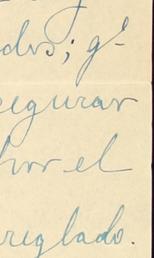 ados; q.e
segurar
por el
rreglado.